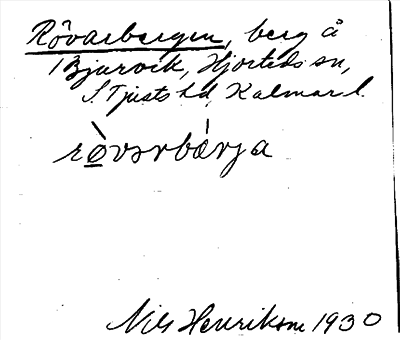 Rövarbergen, berg å
Bjurvik, Hjorteds sn,
S. Tjusts hd, Kalmar l.
rö̀vərbǽrja
Nils Henrikson 1930